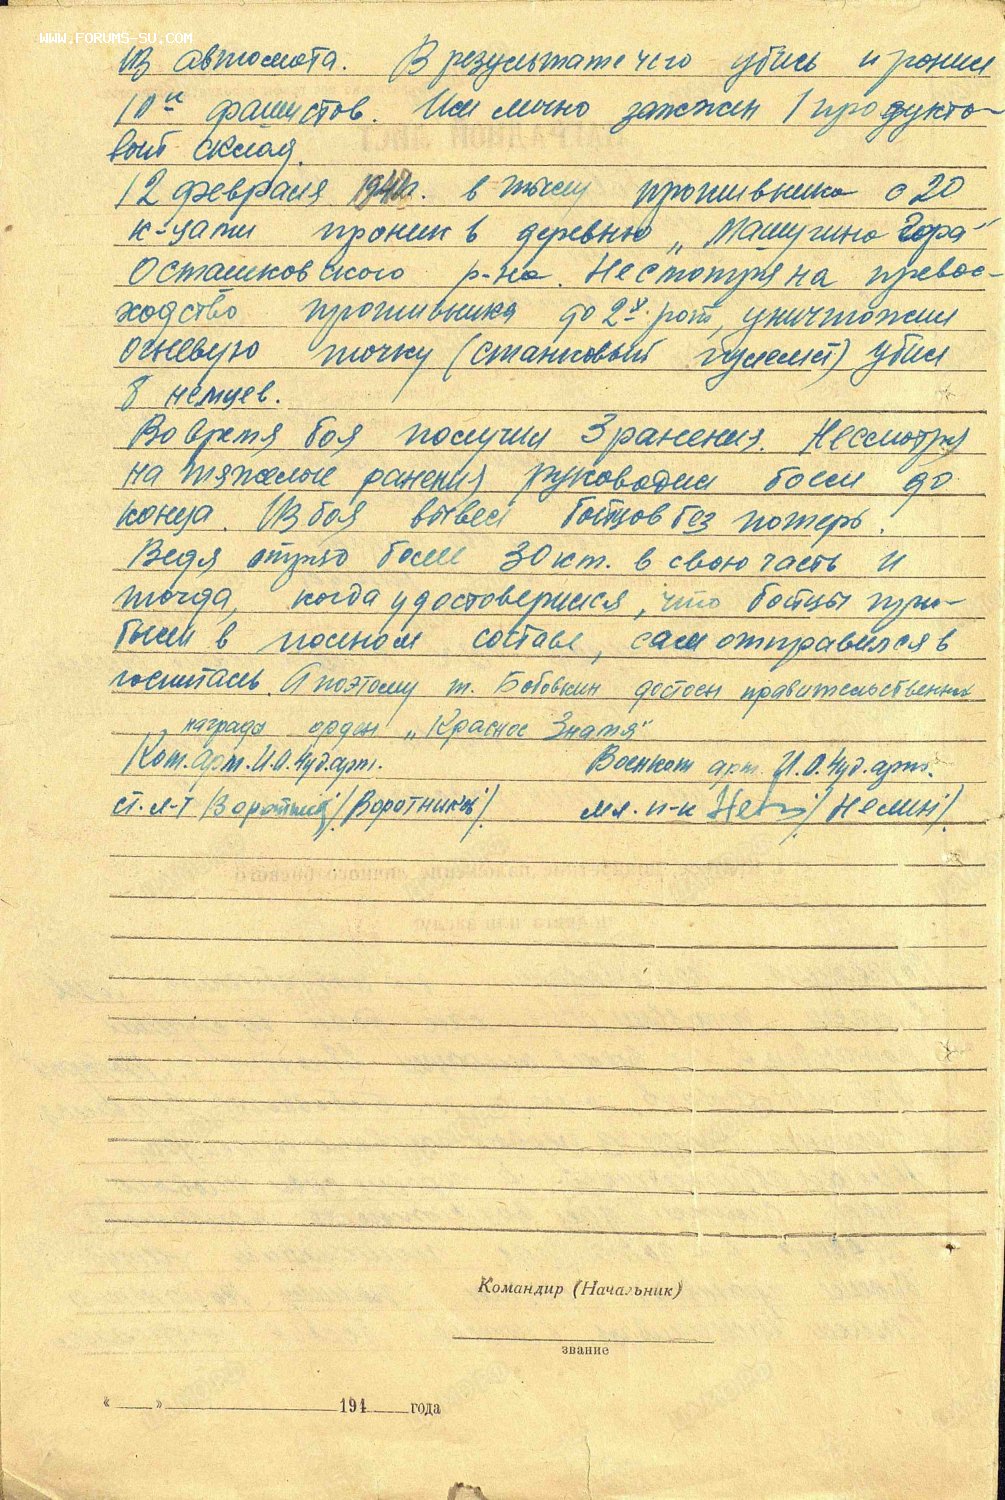 WWW.FORUMS-SU.COM
из автомата. В результате чего убил и ранил
10и фашистов. Им лично зажжен 1 продукто-
вый склад.
12 февраля 1942г. в тылу противника с 20
к-цами проник в деревню „Машугина Гора"
Осташковского р-на. Несмотря на превос-
ходство противника до 2х рот, уничтожил
огневую точку (станковый пулемет) убил
8 немцев.
Во время боя получил 3 ранения. Несмотря
на тяжелые ранения руководил боем до
конца. Из боя вывел бойцов без потерь.
Ведя более 30 км. в свою часть и
тогда, когда удостоверился, что бойцы при-
были в полном составе, сам отправился в
госпиталь. А поэтому т. Бобовкин достоен правительственных
награды орден „Красное Знамя"
Ком. арт. И.О. 4уд. арт. Военком арт. И.О. 4уд. арт.
ст. л-т /Воротник /
мл. п-к /Нелин/
Командир (Начальник)
звание
« » 194 года